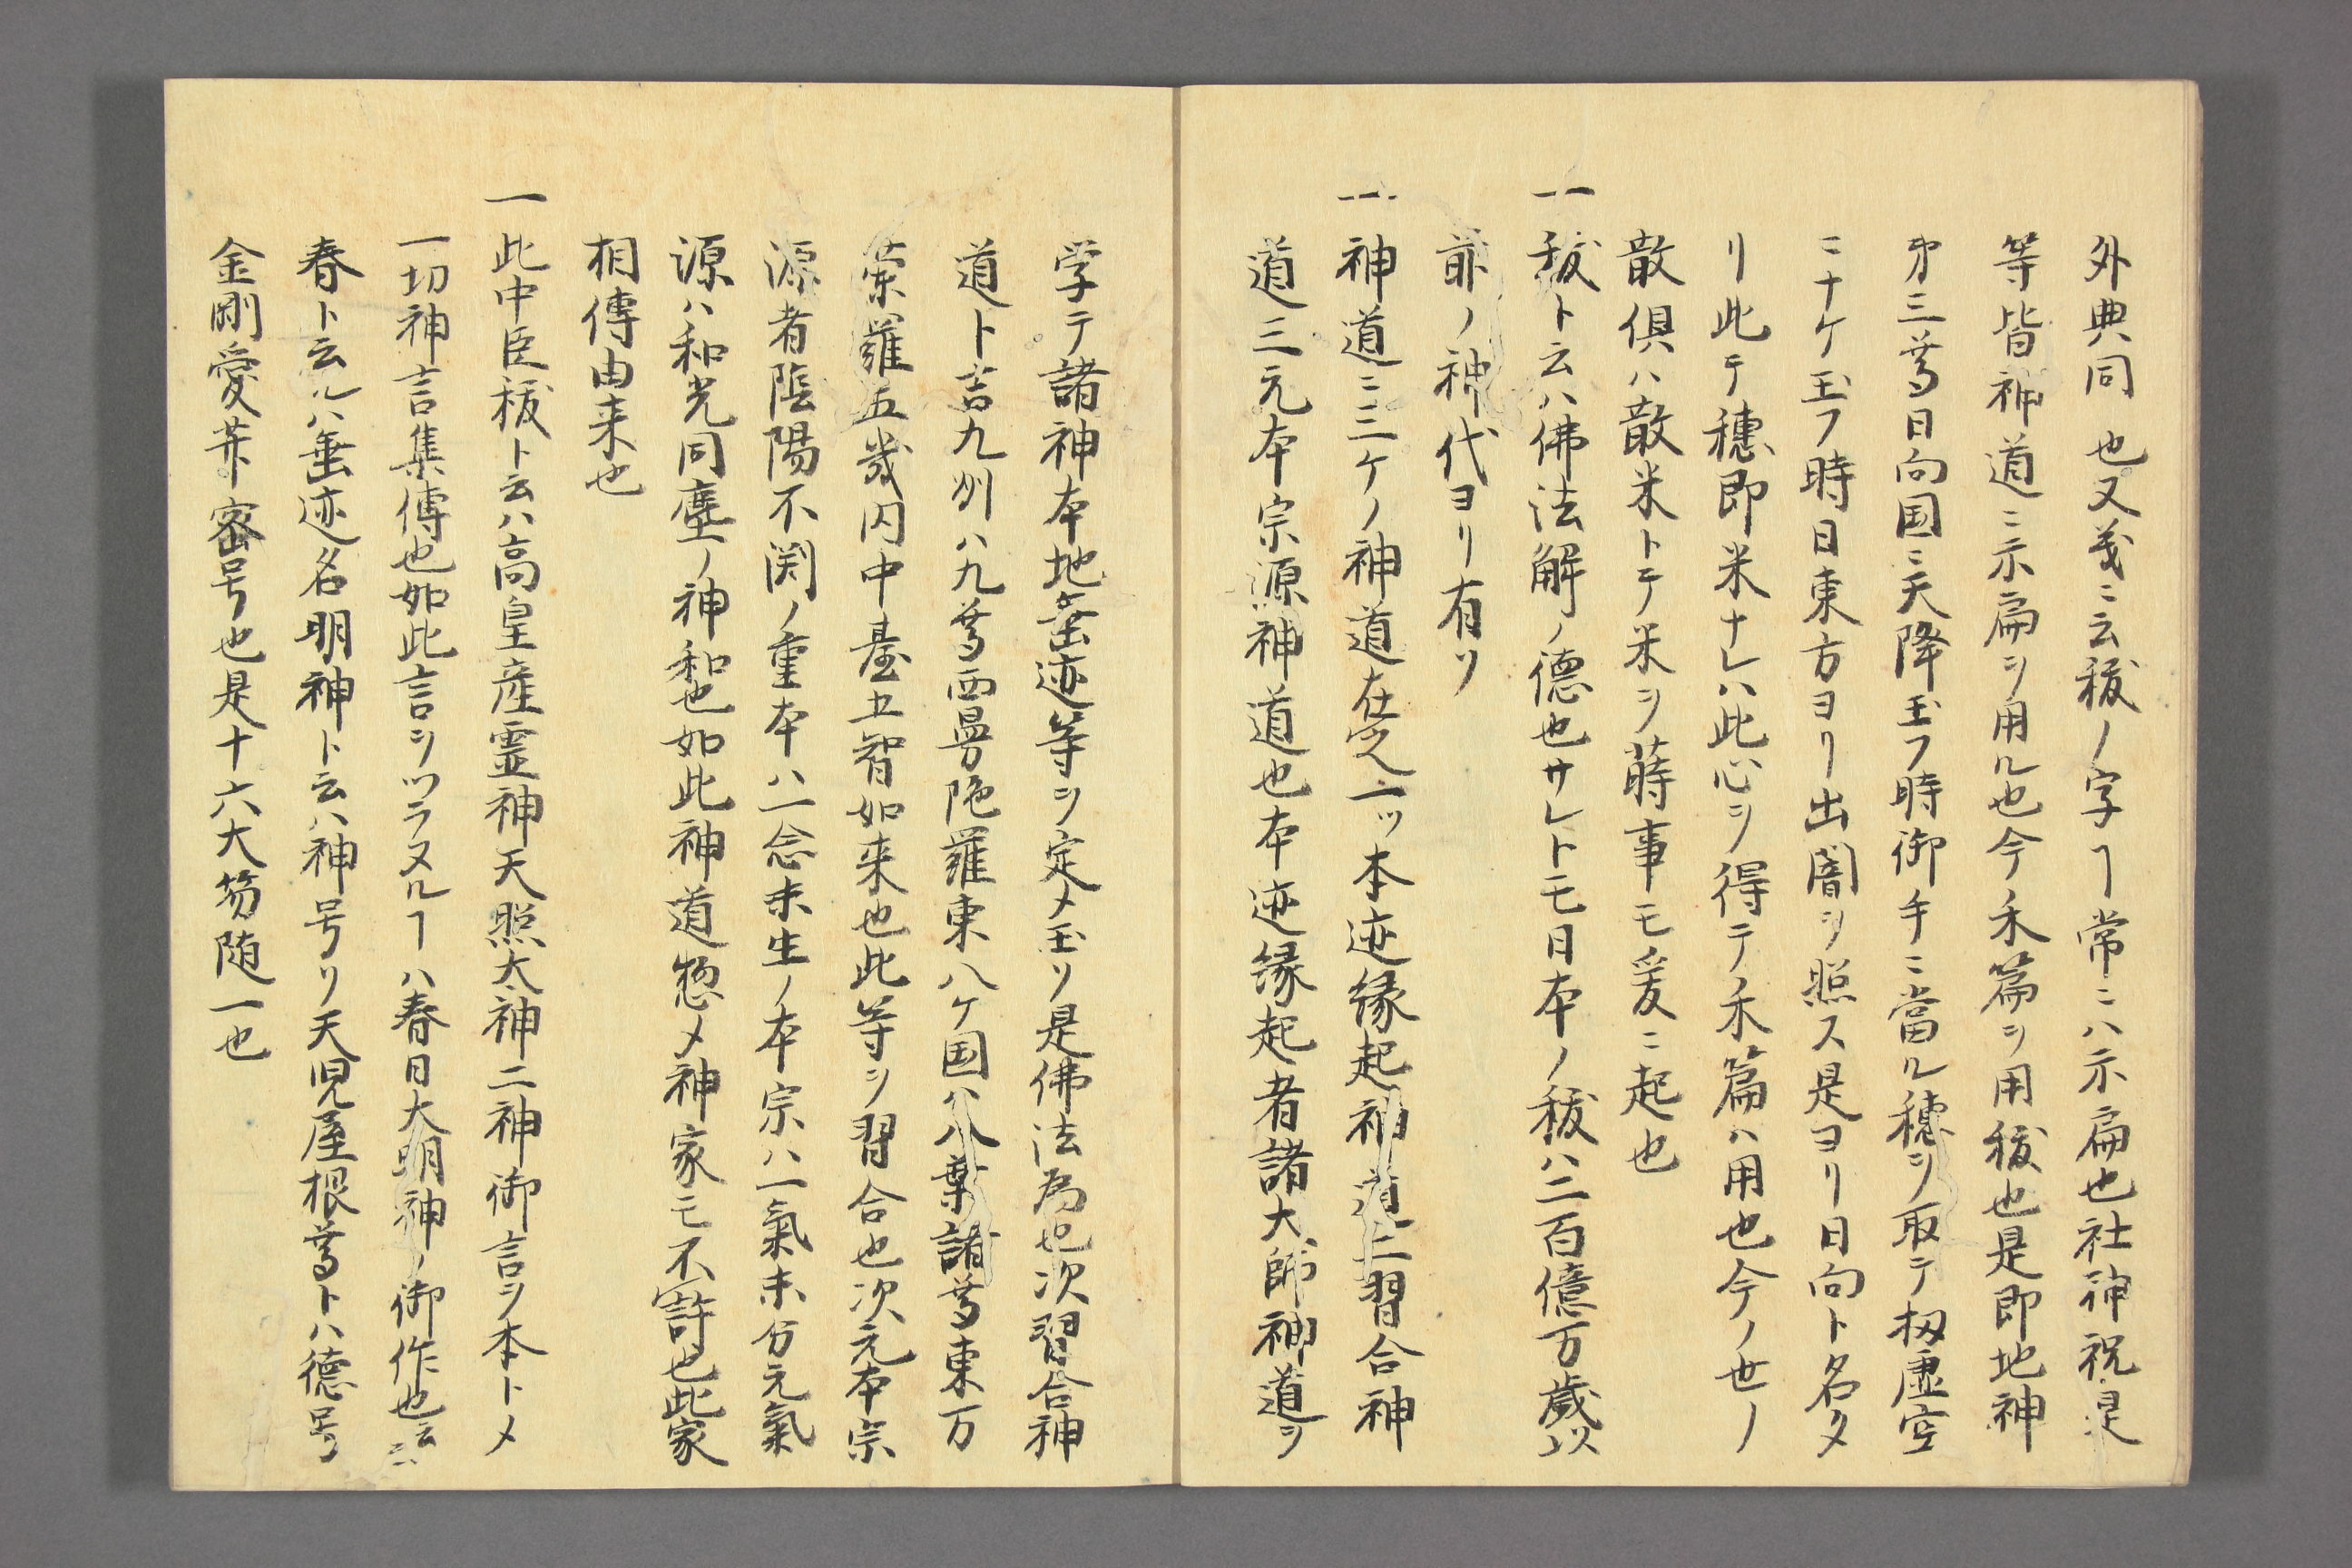 外典同也又義ニ云秡ノ字ヿ常ニハ示扁也社神祝是
等皆神道ニ示扁ヲ用ル也今禾篇ヲ用秡也是即地神
第三尊日向国ニ天降玉フ時御手ニ當ル穂ヲ取テ扨虚空
ニナケ玉フ時日東方ヨリ出闇ヲ照ス是ヨリ日向ト名タ
リ此テ穂即米ナレハ此心ヲ得テノ禾篇ハ用也今ノ世ノ
散倶ハ散米トテ米ヲ蒔事モ爰ニ起也
一秡ト云ハ佛法解ノ德也サレトモ日本ノ秡ハ二百億万歳以
前ノ神代ヨリ有リ
一神道ニ三ケノ神道在之一ッ本迹縁起神道二習合神
道三元本宗源神道也本迹縁起者諸大師神道ヲ
学テ諸神本地垂迹等ヲ定メ玉リ是佛法為也次習合神
道ト者九州ハ九尊西曼陁羅東八ケ国ハ八葉諸尊東万
荼羅五畿内中臺五智如来也此等ヲ習合也次元本宗
源者陰陽不測ノ重本ハ一念未生ノ本宗ハ一氣未分元氣
源ハ和光同塵ノ神和也如此神道惣メ神家モ不許也此家
相傳由来也
一此中臣秡ト云ハ高皇産霊神天照太神二神御言ヲ本トメ
一切神言集傳也如此言ヲツラヌルヿハ春日大明神ノ御作也云云
春ト云ルハ垂迹名明神ト云ハ神号リ天児屋根尊トハ德号
金剛愛菩薩密号也是十六大𦬇随一也